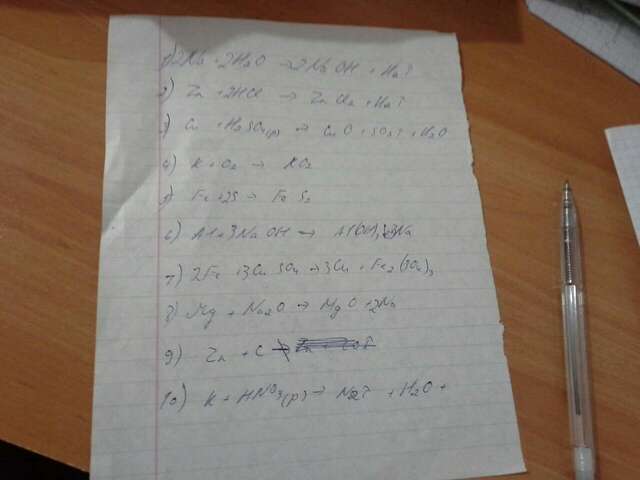 1) 2Na + 2H2O → 2NaOH + H2↑
2) Zn + 2HCl → ZnCl2 + H2↑
3) Cu + H2SO4(р) → CuO + SO2↑ + H2O
4) K + O2 → KO2
5) Fe + 2S → FeS2
6) Al + 3NaOH → Al(OH)3 + 3Na
7) 2Fe + 3CuSO4 → 3Cu + Fe2(SO4)3
8) Mg + Na2O → MgO + 2Na
9) Zn + C
10) K + HNO3(р) → N2↑ + H2O +